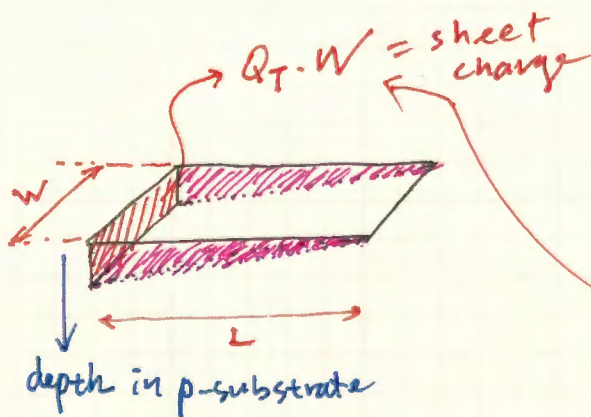 Q_T . W = sheet
charge
W
L
depth in p-substrate